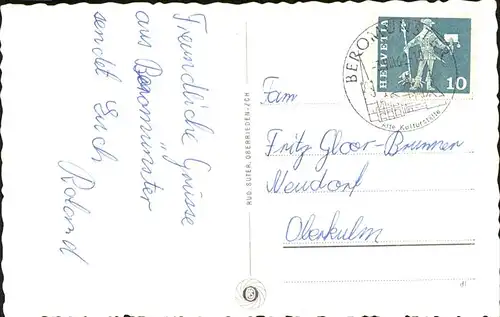 Freundliche Grüsse
aus Beromünster
sendet Euch
Roland
RUD. SUTER, OBERRIEDEN/ZCH
HELVETIA
10
BEROMÜNS
Alte Kulturstätte
Fam
Fritz Gloor-Brunner
Neudorf
Oberkulm